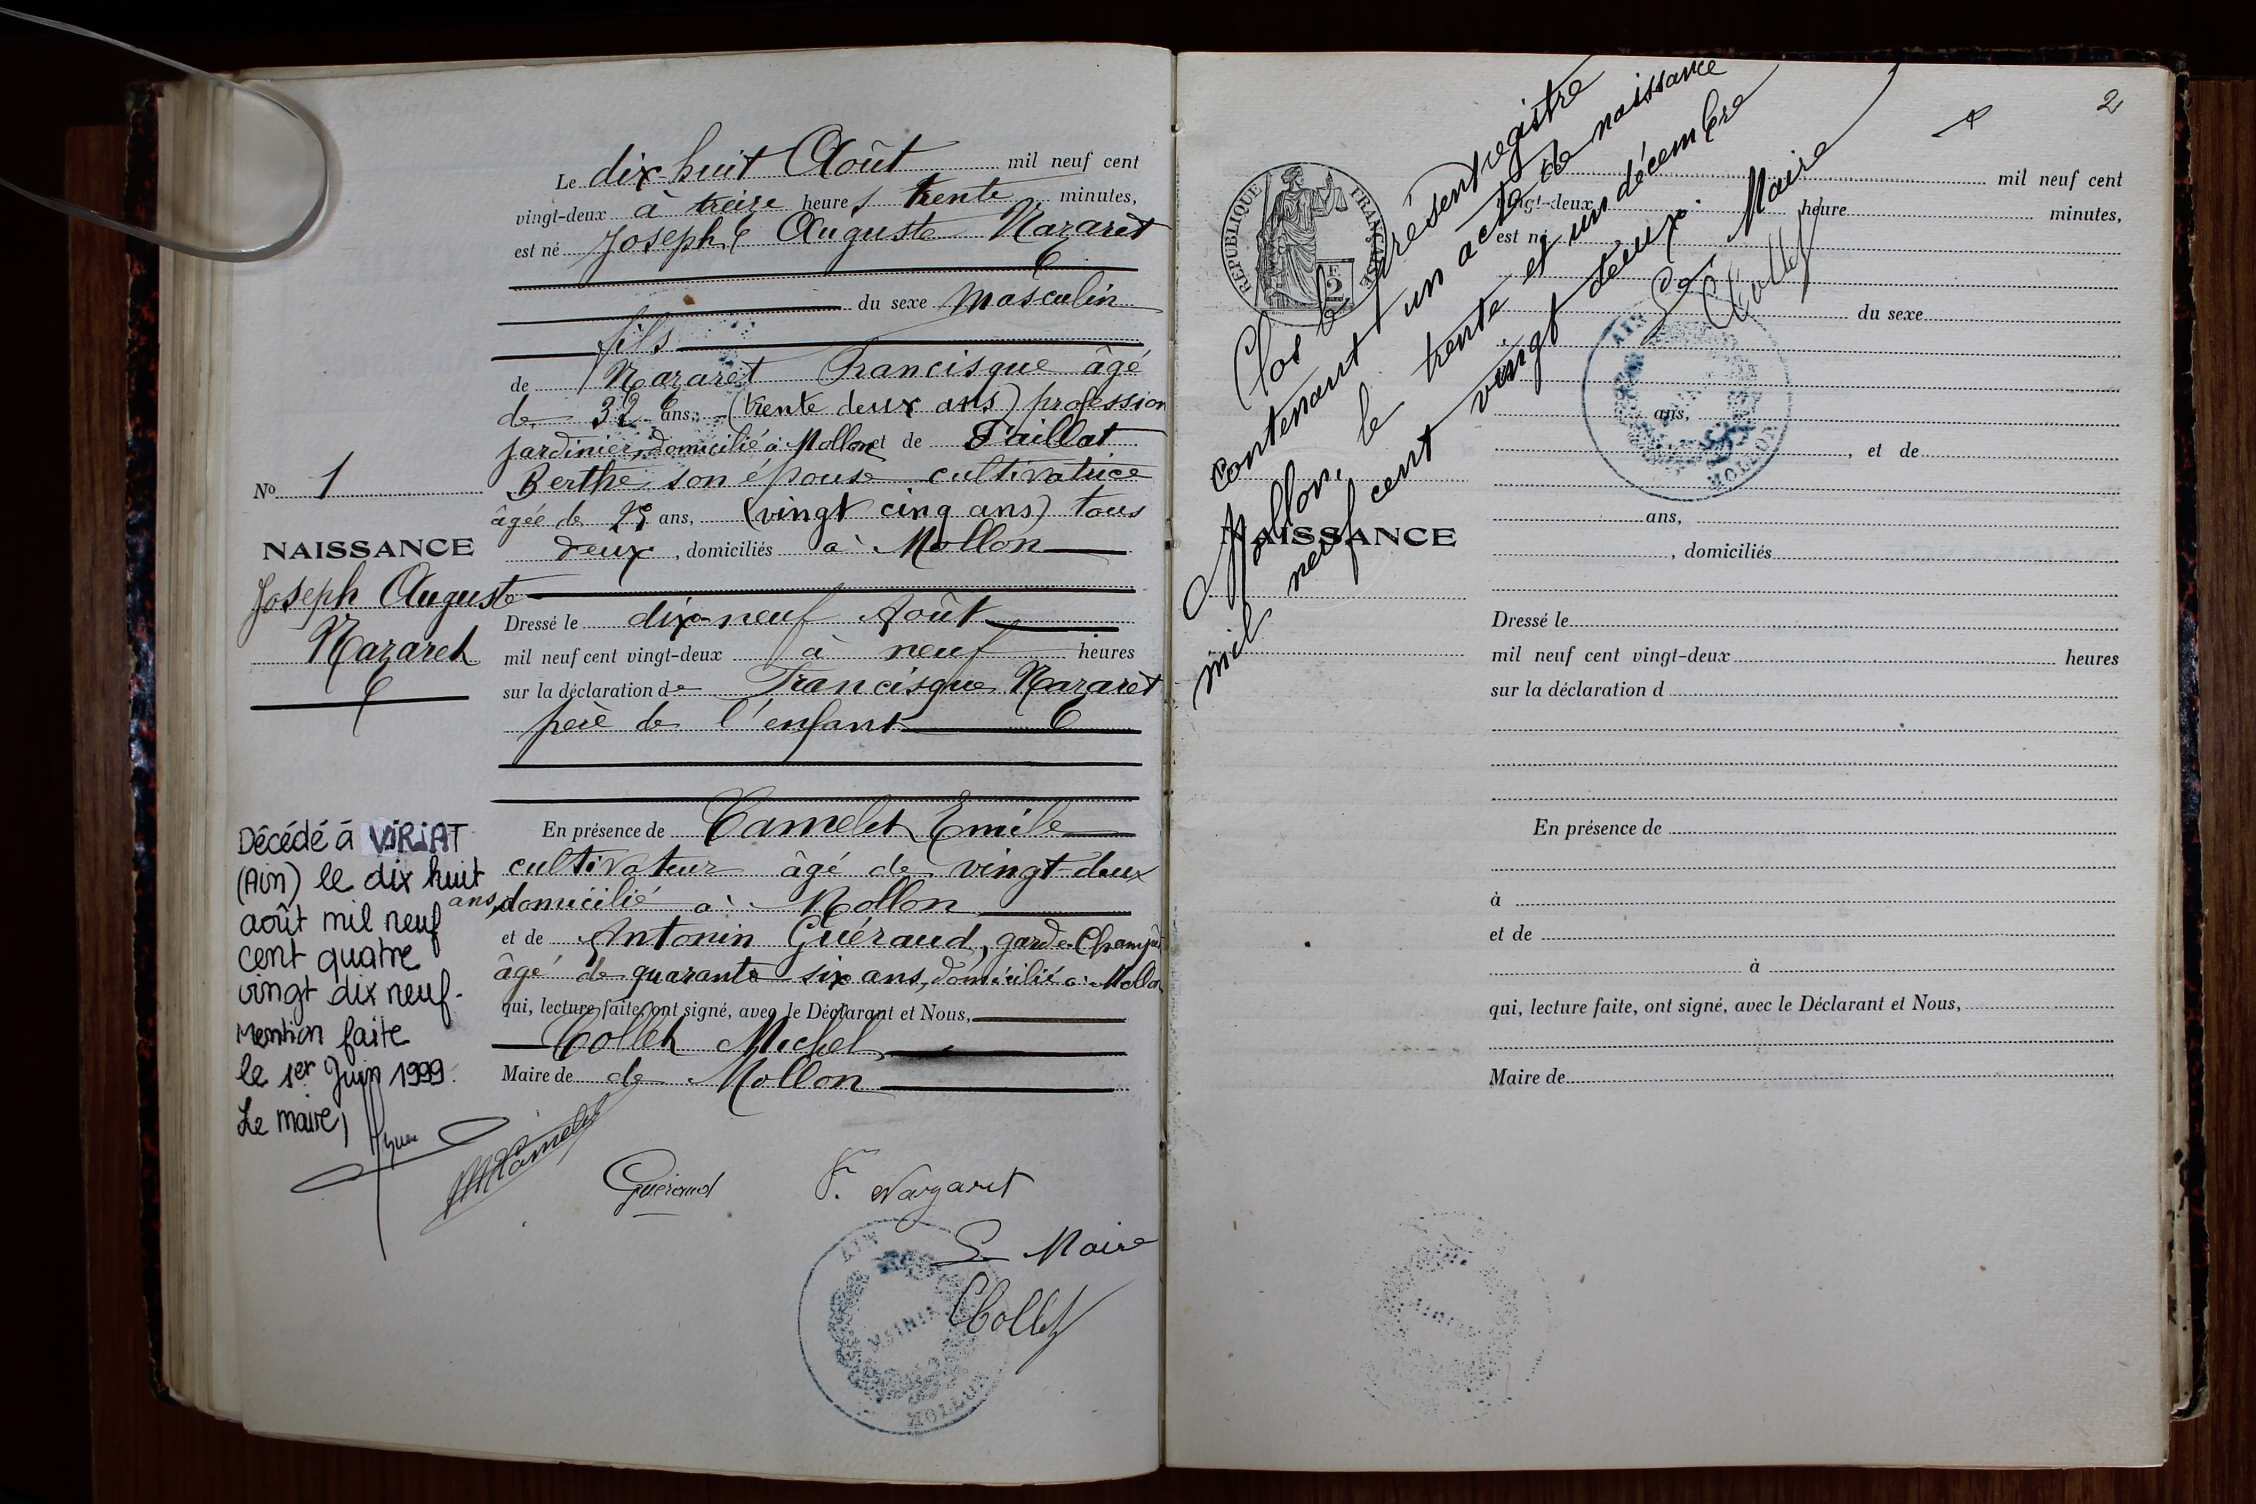 Le dix-huit Août mil neuf cent
vingt-deux à treize heures trente minutes,
est né Joseph Auguste Nazaret
du sexe masculin
fils
de Nazaret Francisque âgé
de 32 ans, (trente deux ans) profession
jardinier, domicilié à Mollon et de Taillat
Berthe, son épouse cultivatrice
âgée de 25 ans, (vingt cinq ans) tous
deux, domiciliés à Mollon
Dressé le dix-neuf Août
mil neuf cent vingt-deux à neuf heures
sur la déclaration de Francisque Nazaret
père de l'enfant
En présence de Camelet Emile
cultivateur âgé de vingt-deux
ans, domicilié à Mollon
et de Antonin Guéraud, garde-Champêt
âgé de quarante six ans, domicilié à Mollon
qui, lecture faite, ont signé, avec le Déclarant et Nous,
Collet Michel
Maire de de Mollon
Guéraud
F. Nazaret
Le Maire
Collet
AIN
MAIRIE
MOLLON
No 1
NAISSANCE
Joseph Auguste
Nazaret
Décédé à VIRIAT
(Ain) le dix huit
août mil neuf
cent quatre
vingt dix neuf.
Mention faite
le 1er Juin 1999.
Le maire,
2
REPUBLIQUE FRANÇAISE
2
Clos le présent registre
contenant un acte de naissance
Mollon, le trente et un décembre
mil neuf cent vingt deux.
Le Maire
Collet
AIN
MOLLON
NAISSANCE
mil neuf cent
vingt-deux heure minutes,
est né
du sexe
ans,
, et de
ans,
, domiciliés
Dressé le
mil neuf cent vingt-deux heures
sur la déclaration d
En présence de
à
et de
à
qui, lecture faite, ont signé, avec le Déclarant et Nous,
Maire de